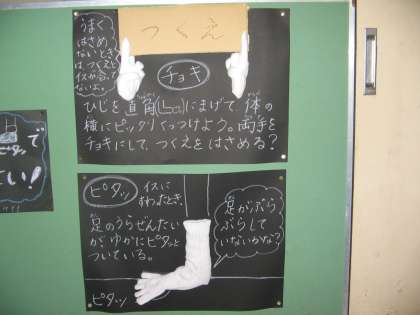 つくえ
うまく
はさめ
ないとき
は つくえと
イスが合って
ないよ。
チョキ
ひじを直角にまげて、体の
横にピッタリくっつけよう。両手を
チョキにして、つくえをはさめる？
ピタッ
イスに
すわったとき、
足のうらぜんたい
が、ゆかにピタッと
ついている。
足がぶら
ぶらして
いないかな？
ピタッ
で
ピタッ
い！